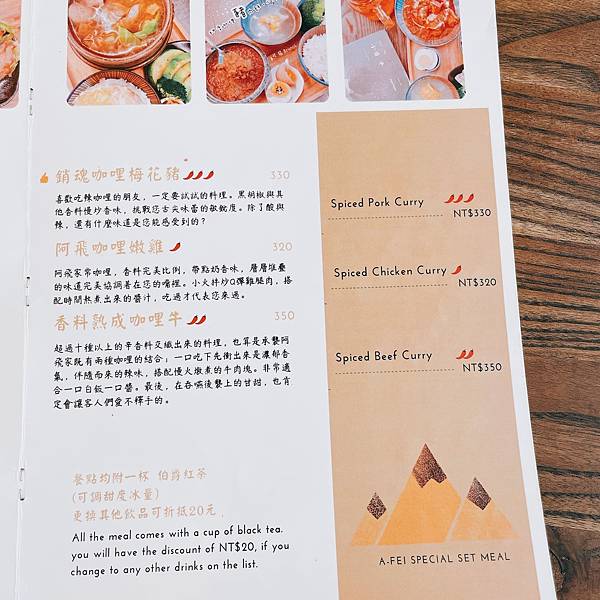 銷魂咖哩梅花豬 330
喜歡吃辣咖哩的朋友，一定要試試的料理。黑胡椒與其
他香料慢炒香味，挑戰您舌尖味蕾的敏銳度。除了酸與
辣，還有什麼味道是您能感受到的？
阿飛咖哩嫩雞 320
阿飛家常咖哩，香料完美比例，帶點奶香味，層層堆疊
的味道完美協調著在您的嘴裡。小火拌炒Q彈雞腿肉，搭
配時間熬煮出來的醬汁，吃過才代表您來過。
香料熟成咖哩牛 350
超過十種以上的辛香料交織出來的料理，也算是承襲阿
飛家既有兩種咖哩的結合；一口吃下先衝出來是濃郁香
氣，伴隨而來的辣味，搭配慢火燉煮的牛肉塊。非常適
合一口白飯一口醬。最後，在吞嚥後襲上的甘甜，也肯
定會讓客人們愛不釋手的。
餐點均附一杯 伯爵紅茶
(可調甜度冰量)
更換其他飲品可折抵20元。
All the meal comes with a cup of black tea.
you will have the discount of NT$20, if you
change to any other drinks on the list.
Spiced Pork Curry
NT$330
Spiced Chicken Curry
NT$320
Spiced Beef Curry
NT$350
A-FEI SPECIAL SET MEAL